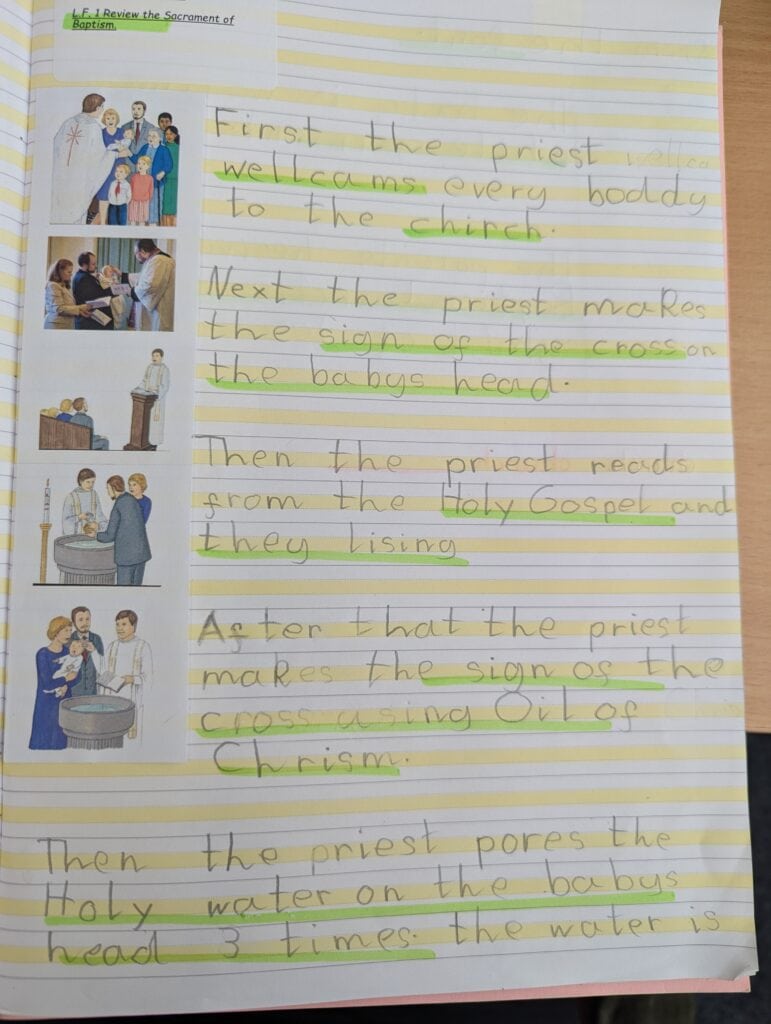 L.F. 1 Review the Sacrament of
Baptism.
First the priest
wellcams every boddy
to the chirch.
Next the priest makes
the sign of the cross on
the babys head.
Then the priest reads
from the Holy Gospel and
they lising
After that the priest
makes the sign of the
cross using Oil of
Chrism.
Then the priest pores the
Holy water on the babys
head 3 times. the water is